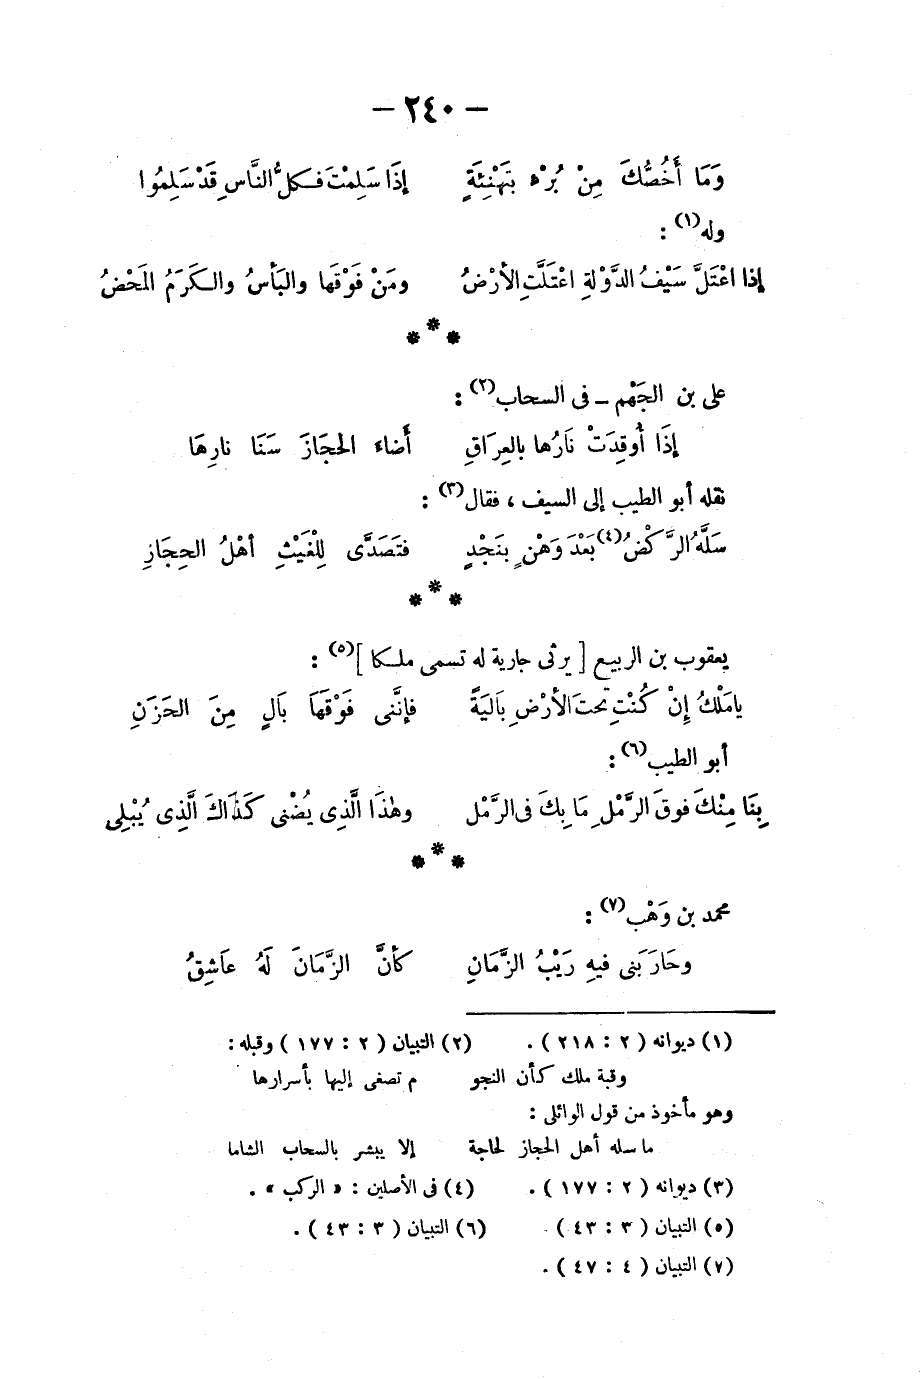 — ٢٤٠ —
وَمَا أَخُصُّكَ مِنْ بُرْءٍ بِتَهْنِئَةٍ إِذَا سَلِمْتَ فَكلُّ النَّاسِ قَدْ سَلِمُوا
وله(١) :
إِذا اعْتَلَّ سَيْفُ الدَّوْلةِ اعْتَلَّتِ الأَرْضُ ومَنْ فَوْقَها والبَأسُ والكَرَمُ المَحْضُ
* * *
على بن الجَهْم – فى السحاب(٢) :
إِذَا أُوقِدَتْ نَارُها بالعِرَاقِ أَضاءَ الحجَازَ سَنَا نارِهَا
نقله أبو الطيب إلى السيف ، فقال(٣) :
سَلَّهُ الرَّكْضُ(٤) بَعْدَ وَهْنٍ بِنَجْدٍ فتَصَدَّى لِلْغَيْثِ أهْلُ الحِجَازِ
* * *
يعقوب بن الربيع [ يرثى جارية له تسمى ملكا ](٥) :
يامَلْكُ إِنْ كُنْتِ تحتَ الأرْضِ بَاليَةً فإنَّنى فَوْقَهَا بَالٍ مِنَ الحَزَنِ
أبو الطيب(٦) :
بِنَا مِنْكَ فوقَ الرَّمْلِ مَا بِكَ فى الرَّمْلِ وهٰذَا الَّذِى يُضْنى كَذَاكَ الَّذِى يُبْلِى
* * *
محمد بن وَهْب(٧) :
وحَارَبَنى فيهِ رَيْبُ الزَّمانِ كأنَّ الزَّمَانَ لَهُ عاَشِقُ
(١) ديوانه ( ٢ : ٢١٨ ) . (٢) التبيان ( ٢ : ١٧٧ ) وقبله :
وقبة ملك كأن النجو م تصغى إليها بأسرارها
وهو مأخوذ من قول الوائلى :
ما سله أهل الحجاز لحاجة إلا يبشر بالسحاب الشاما
(٣) ديوانه ( ٢ : ١٧٧ ) . (٤) فى الأصلين : « الركب » .
(٥) التبيان ( ٣ : ٤٣ ) . (٦) التبيان ( ٣ : ٤٣ ) .
(٧) التبيان ( ٤ : ٤٧ ) .